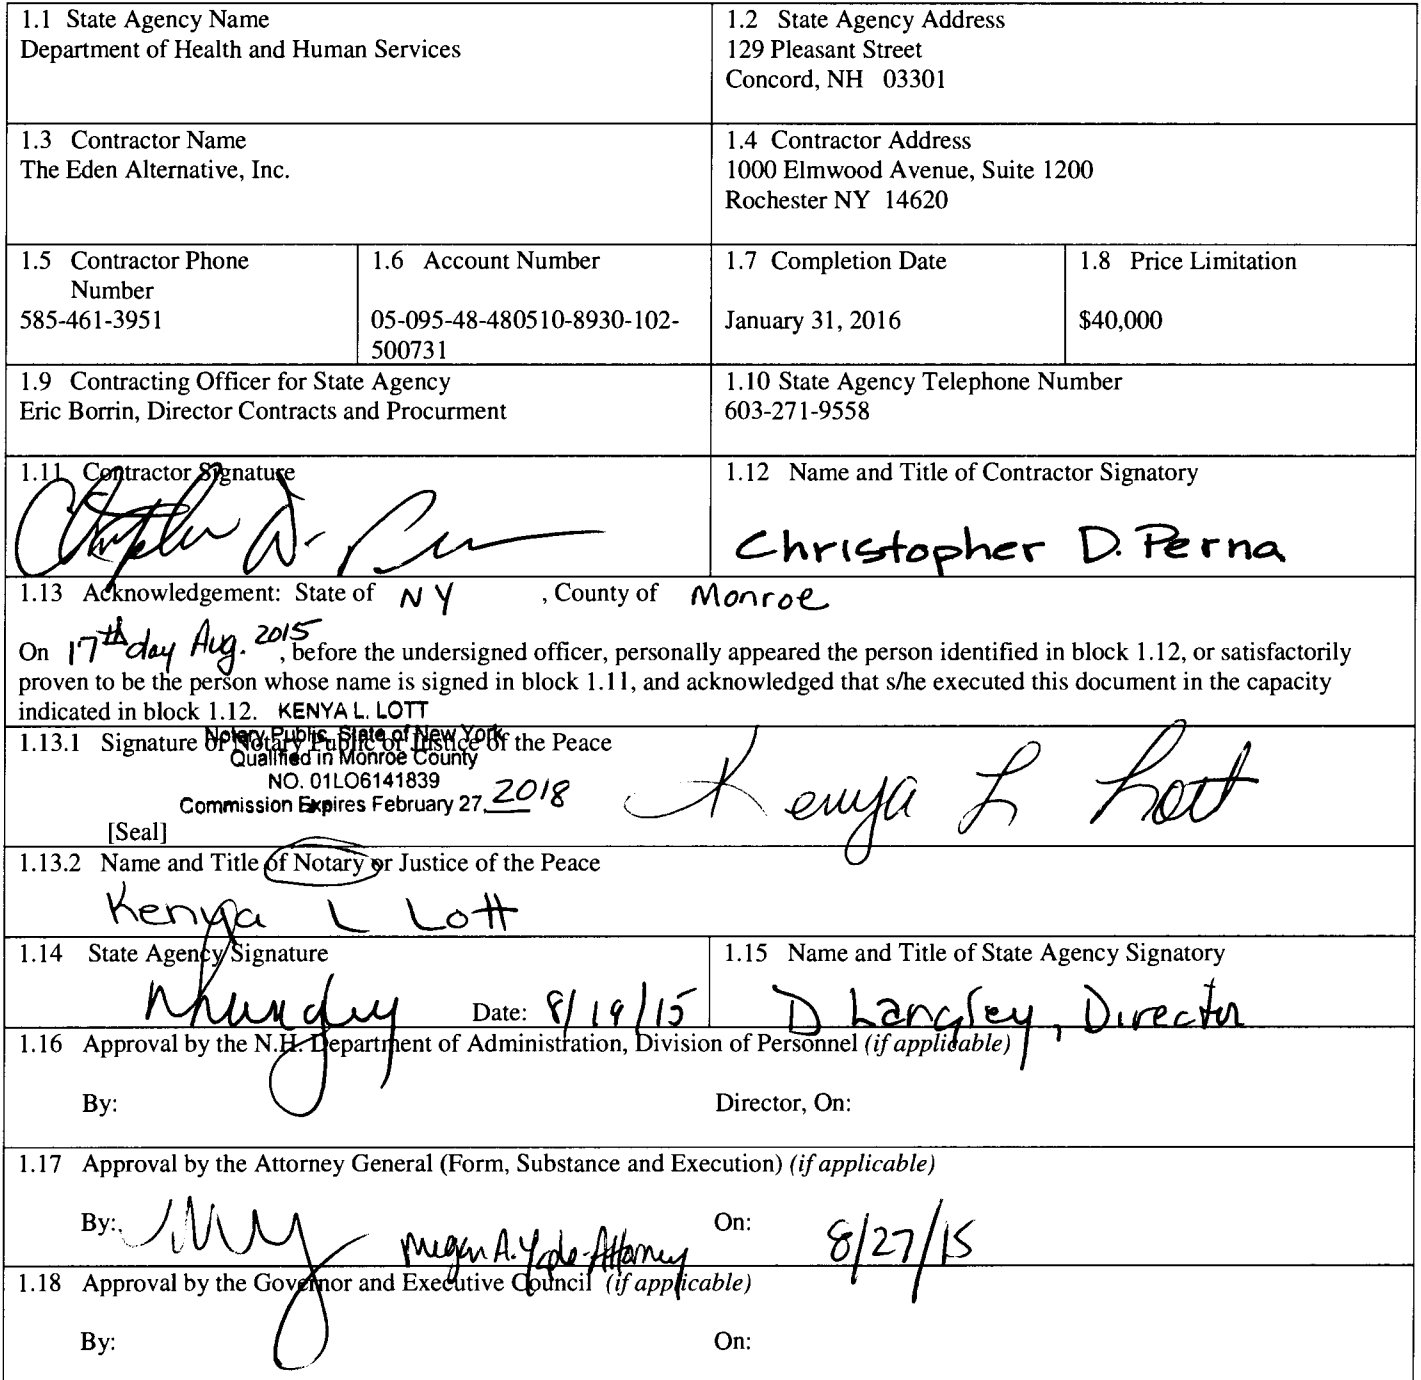 1.1 State Agency Name
Department of Health and Human Services
1.2 State Agency Address
129 Pleasant Street
Concord, NH 03301
1.3 Contractor Name
The Eden Alternative, Inc.
1.4 Contractor Address
1000 Elmwood Avenue, Suite 1200
Rochester NY 14620
1.5 Contractor Phone
Number
585-461-3951
1.6 Account Number
05-095-48-480510-8930-102-
500731
1.7 Completion Date
January 31, 2016
1.8 Price Limitation
$40,000
1.9 Contracting Officer for State Agency
Eric Borrin, Director Contracts and Procurment
1.10 State Agency Telephone Number
603-271-9558
1.11 Contractor Signature
1.12 Name and Title of Contractor Signatory
Christopher D. Perna
1.13 Acknowledgement: State of NY , County of Monroe
On 17th day Aug. 2015, before the undersigned officer, personally appeared the person identified in block 1.12, or satisfactorily
proven to be the person whose name is signed in block 1.11, and acknowledged that s/he executed this document in the capacity
indicated in block 1.12. KENYA L. LOTT
Notary Public, State of New York
1.13.1 Signature of Notary Public or Justice of the Peace
Qualified in Monroe County
NO. 01LO6141839
Commission Expires February 27, 2018
Kenya L Lott
[Seal]
1.13.2 Name and Title of Notary or Justice of the Peace
Kenya L Lott
1.14 State Agency Signature
Date: 8/19/15
1.15 Name and Title of State Agency Signatory
D Langley, Director
1.16 Approval by the N.H. Department of Administration, Division of Personnel (if applicable)
By:
Director, On:
1.17 Approval by the Attorney General (Form, Substance and Execution) (if applicable)
By: Megan A. - Attorney
On: 8/27/15
1.18 Approval by the Governor and Executive Council (if applicable)
By:
On: